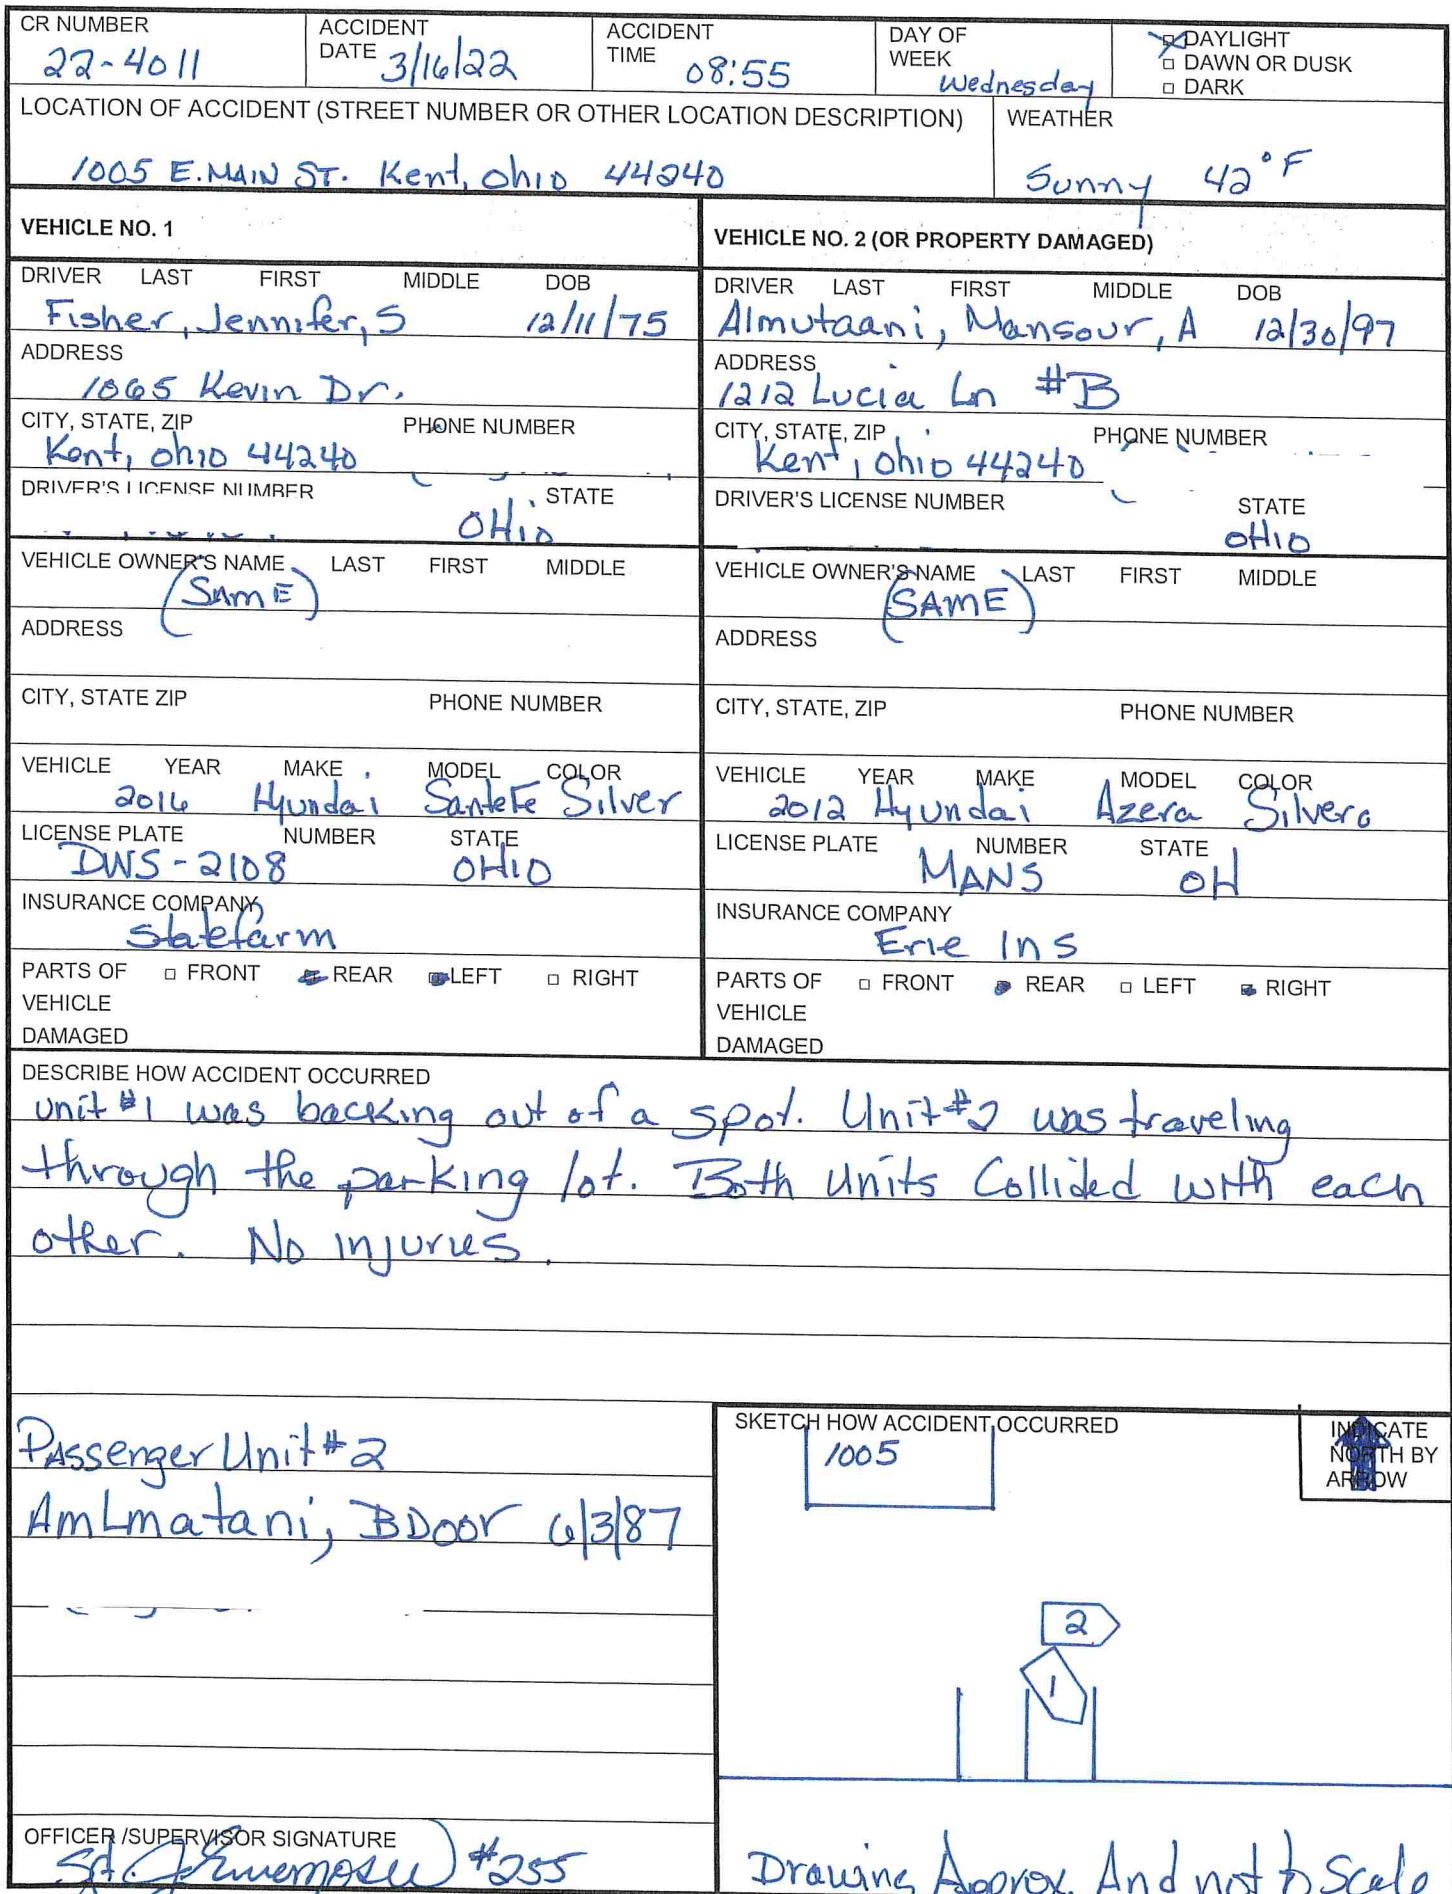 CR NUMBER ACCIDENT DATE ACCIDENT TIME DAY OF WEEK DAYLIGHT
22-4011 3/16/22 08:55 Wednesday DAWN OR DUSK
DARK
LOCATION OF ACCIDENT (STREET NUMBER OR OTHER LOCATION DESCRIPTION) WEATHER
1005 E. MAIN ST. Kent, Ohio 44240 Sunny 42°F
VEHICLE NO. 1
DRIVER LAST FIRST MIDDLE DOB
Fisher, Jennifer, S 12/11/75
ADDRESS
1065 Kevin Dr.
CITY, STATE, ZIP PHONE NUMBER
Kent, ohio 44240
DRIVER'S LICENSE NUMBER STATE
OHio
VEHICLE OWNER'S NAME LAST FIRST MIDDLE
(SAmE)
ADDRESS
CITY, STATE ZIP PHONE NUMBER
VEHICLE YEAR MAKE MODEL COLOR
2016 Hyundai SanteFe Silver
LICENSE PLATE NUMBER STATE
DWS-2108 OHIO
INSURANCE COMPANY
Statefarm
PARTS OF FRONT REAR LEFT RIGHT
VEHICLE
DAMAGED
VEHICLE NO. 2 (OR PROPERTY DAMAGED)
DRIVER LAST FIRST MIDDLE DOB
Almutaani, Mansour, A 12/30/97
ADDRESS
1212 Lucia Ln #B
CITY, STATE, ZIP PHONE NUMBER
Kent, ohio 44240
DRIVER'S LICENSE NUMBER STATE
oHIO
VEHICLE OWNER'S NAME LAST FIRST MIDDLE
(SAME)
ADDRESS
CITY, STATE, ZIP PHONE NUMBER
VEHICLE YEAR MAKE MODEL COLOR
2012 Hyundai Azera Silvero
LICENSE PLATE NUMBER STATE
MANS OH
INSURANCE COMPANY
Erie Ins
PARTS OF FRONT REAR LEFT RIGHT
VEHICLE
DAMAGED
DESCRIBE HOW ACCIDENT OCCURRED
unit #1 was backing out of a spot. Unit #2 was traveling
through the parking lot. Both Units Collided with each
other. No injuries.
Passenger Unit #2
AmLmatani, BDoor 6/3/87
OFFICER /SUPERVISOR SIGNATURE
#255
SKETCH HOW ACCIDENT OCCURRED
1005
INDICATE
NORTH BY
ARROW
2
1
Drawing Approx. And not to Scale